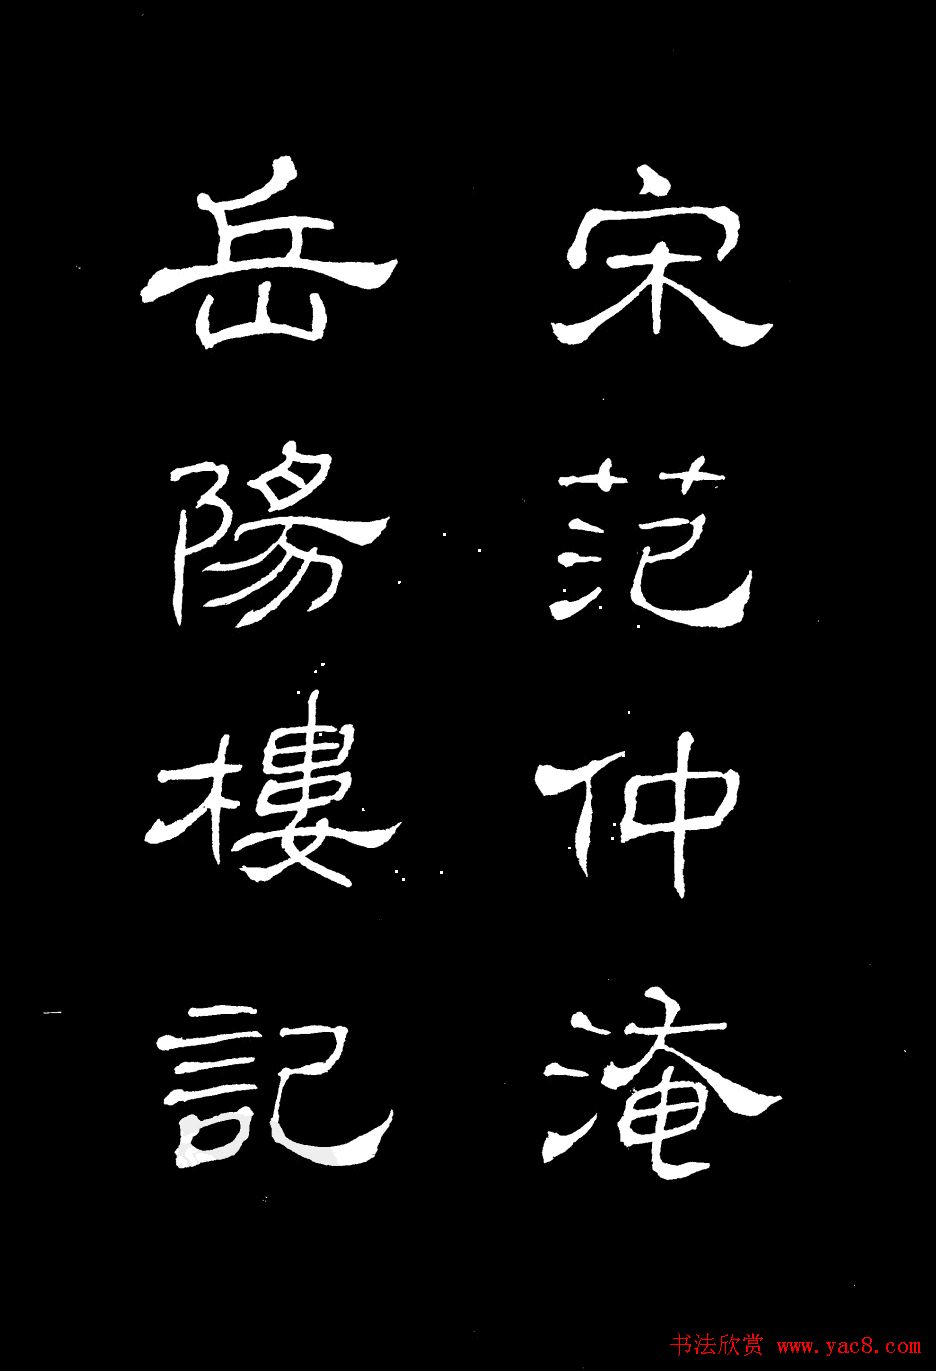 宋范仲淹
岳陽樓記
书法欣赏 www.yac8.com